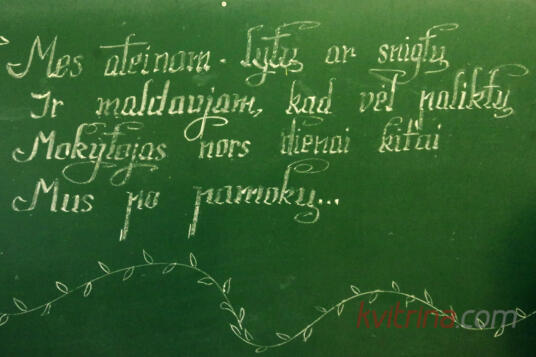 Mes ateinam - lytų ar snigtų
Ir maldaujam, kad vėl paliktų
Mokytojas nors dienai kitai
Mus po pamokų...
kvitrina.com